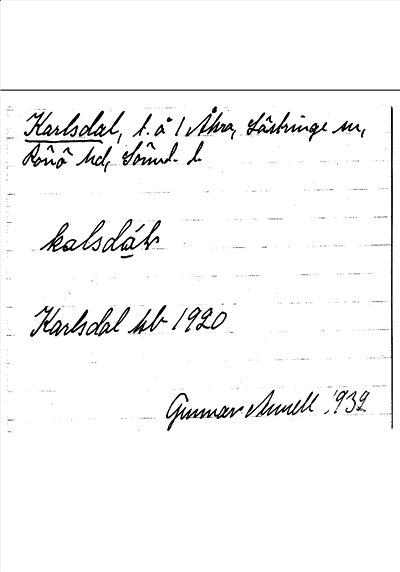 Karlsdal, t. å 1 Åkra, Lästringe sn,
Rönö hd, Söml. l.
kalsdáƚ
Karlsdal hb 1920
Gunnar Annell 1939